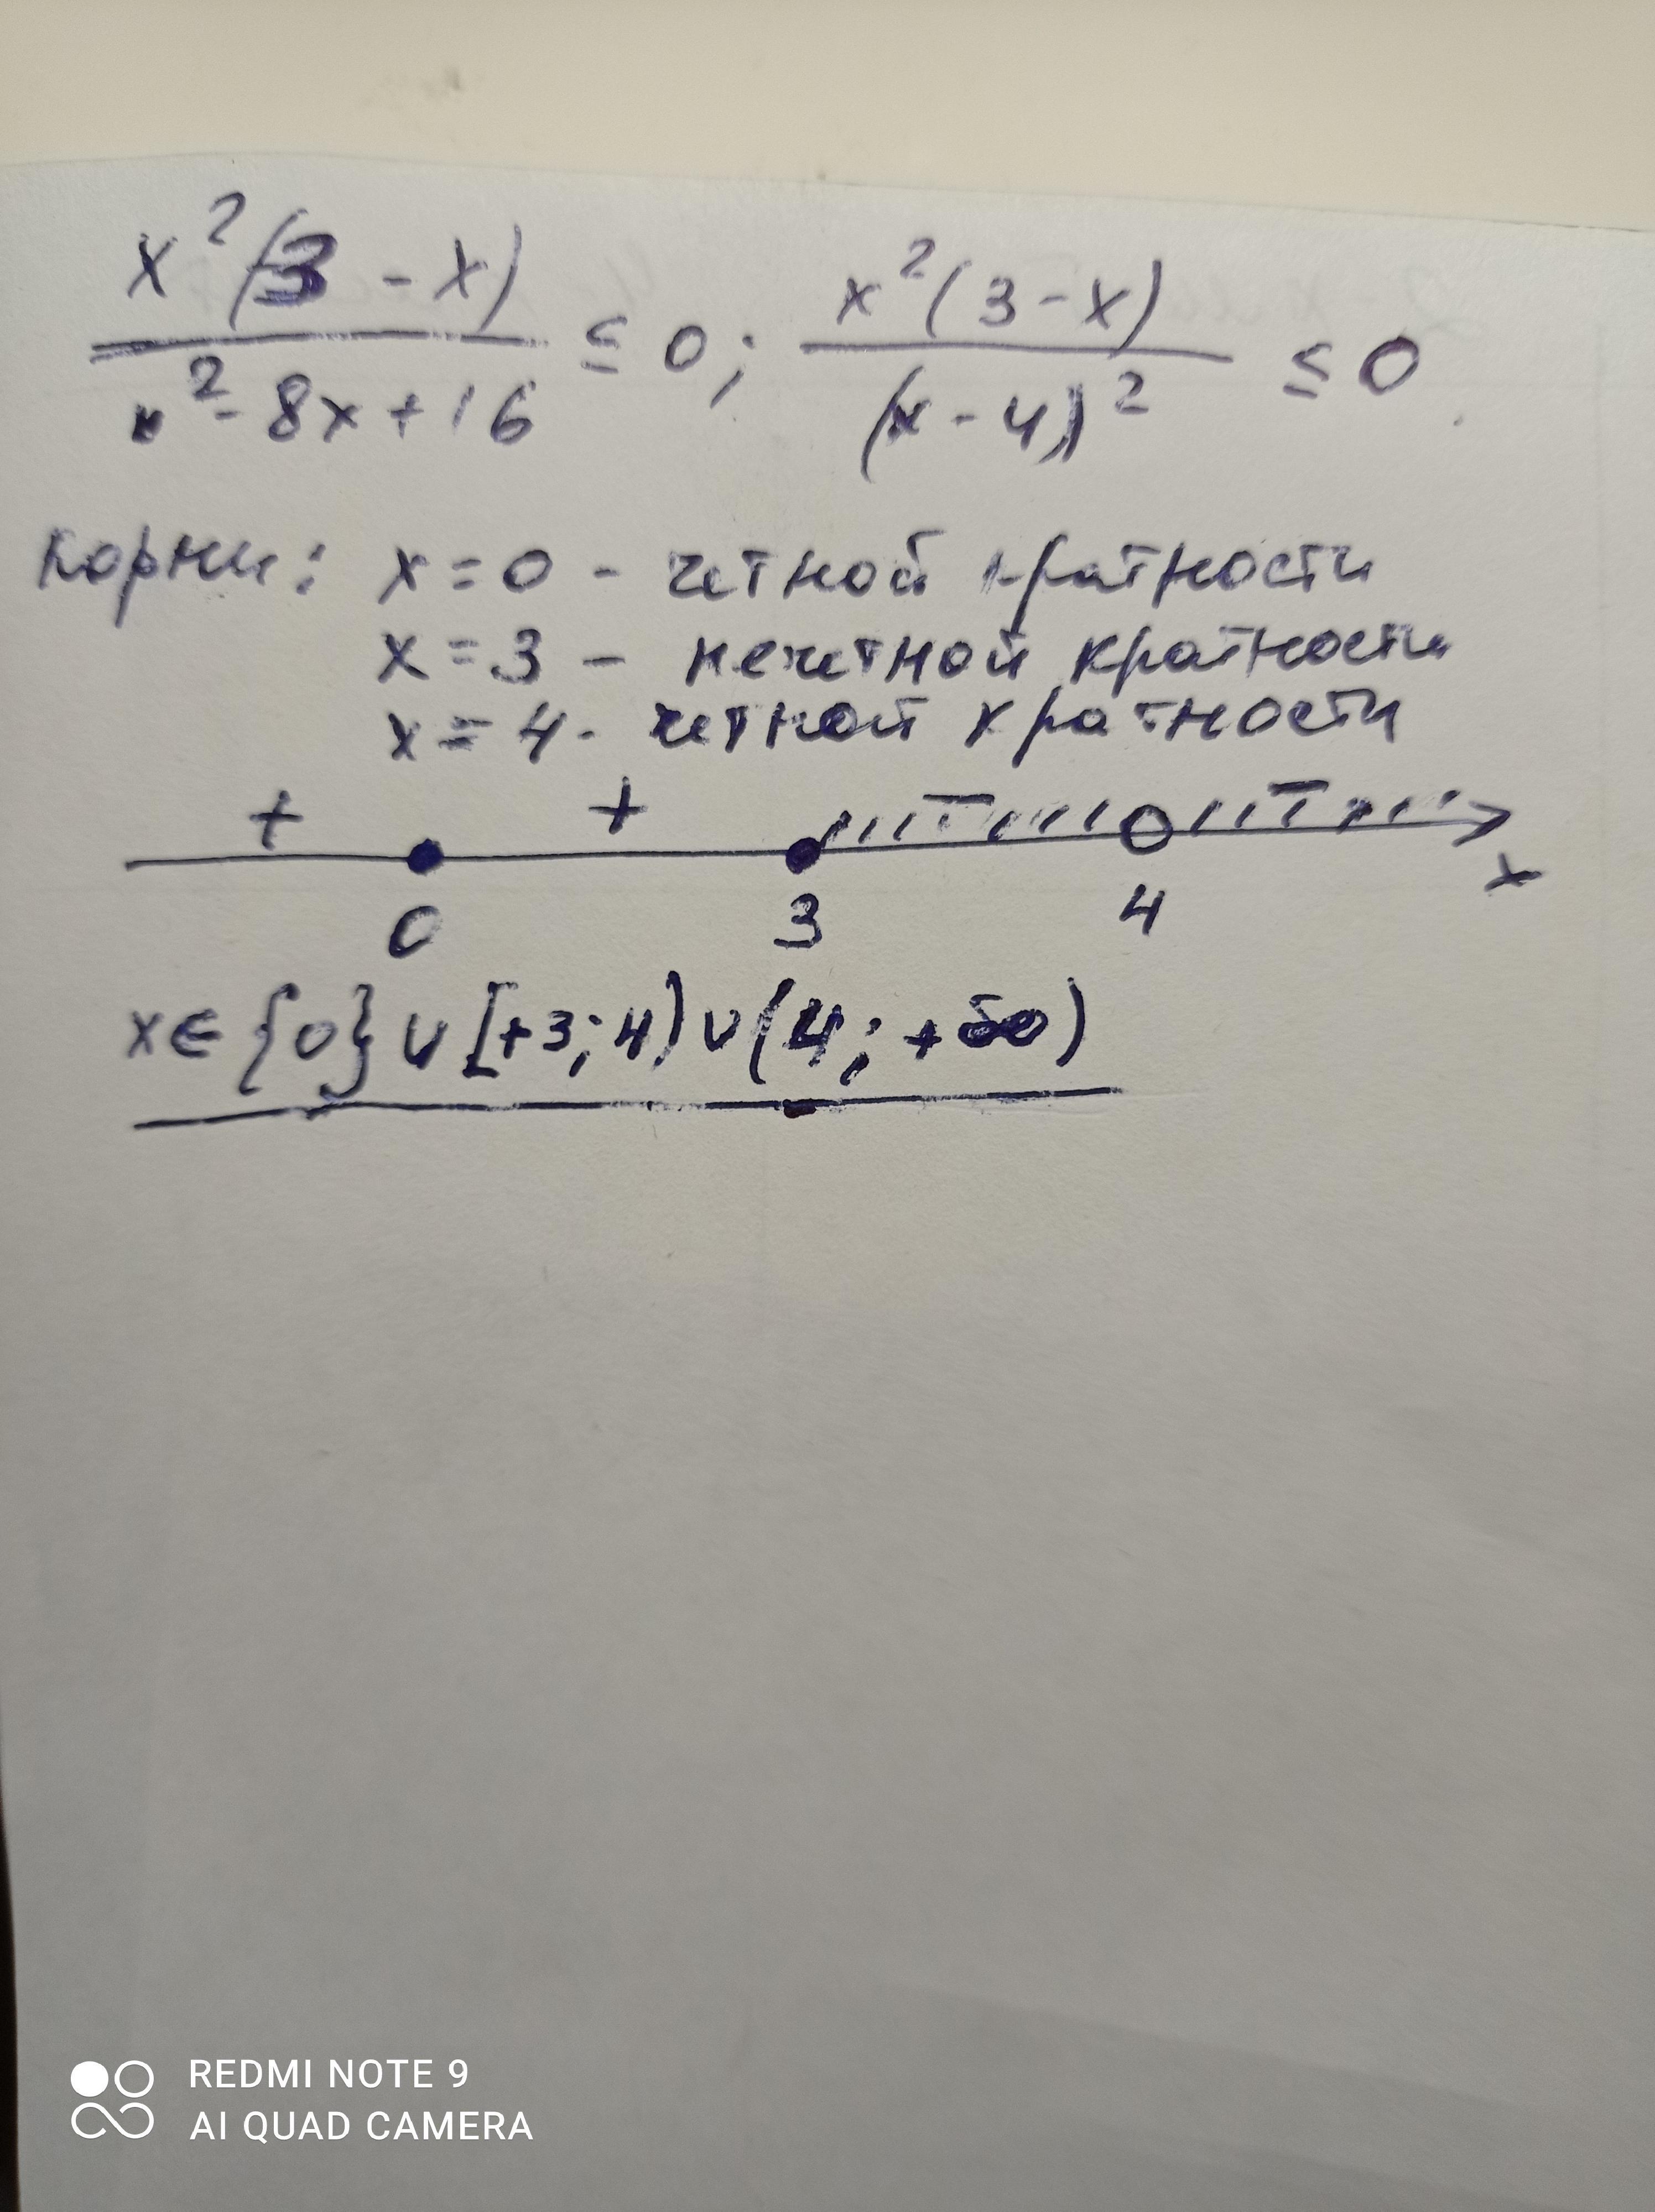 x²(3 - x) / x² - 8x + 16 ≤ 0; x²(3 - x) / (x - 4)² ≤ 0
Корни: x = 0 - четной кратности
x = 3 - нечетной кратности
x = 4 - четной кратности
+ + - -
0 3 4 x
x ∈ {0} ∪ [+3; 4) ∪ (4; +∞)
REDMI NOTE 9
AI QUAD CAMERA